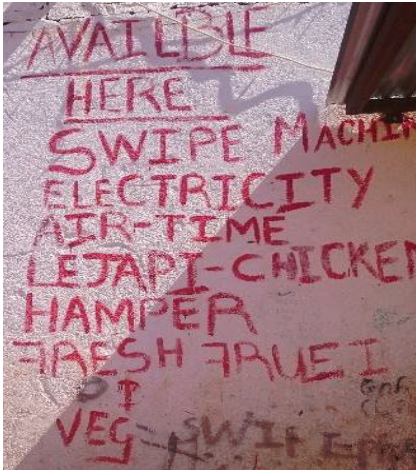 AVAILBLE
HERE
SWIPE MACHIN
ELECTRICITY
AIR-TIME
LEJAPI-CHICKEN
HAMPER
FRESH FRUEI
VEG